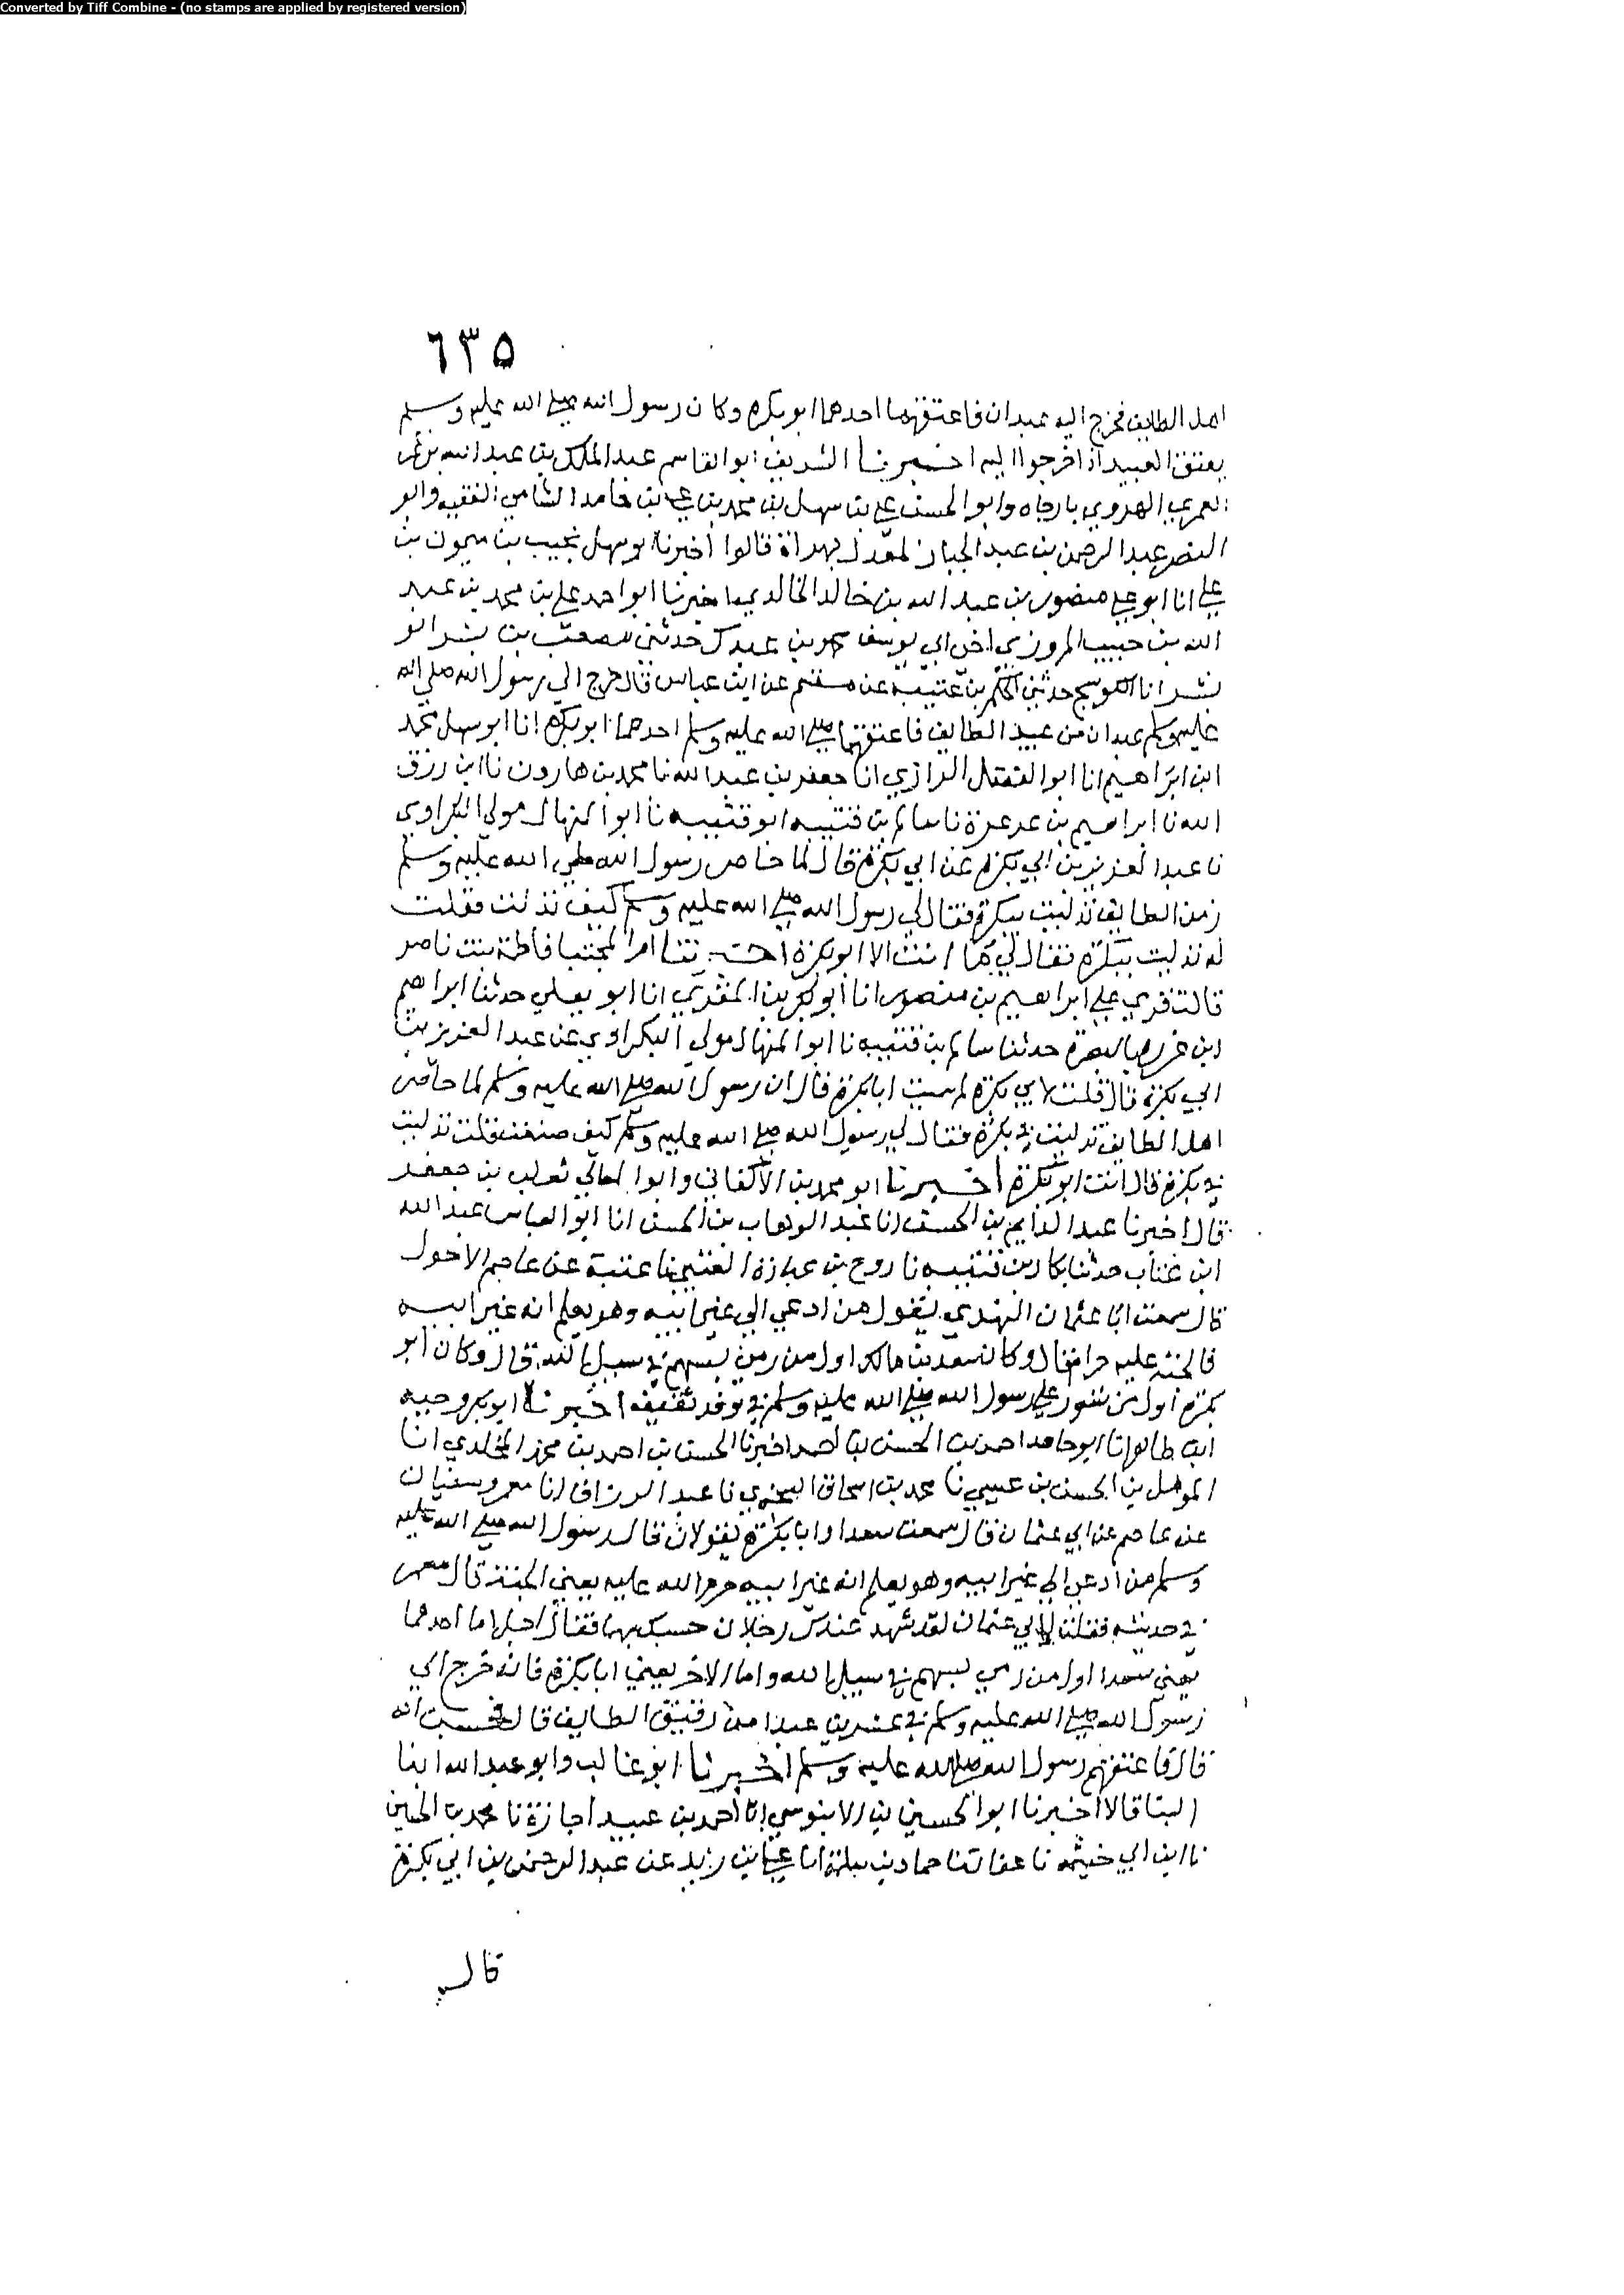 Converted by Tiff Combine - (no stamps are applied by registered version)
٦٣٥
اهل الطايف فخرج اليه عبدان فاعتقهما احدهما ابو بكره وكان رسول الله صلى الله عليه وسلم
يعتق العبيد اذا خرجوا اليه اخبرنا الشريف ابو القاسم عبد الملك بن عبد الله بن عمر
العمري الهروي بارجاه وابو الحسن علي بن سهل بن محمد بن علي بن حامد الشاسي الفقيه وابو
النصر عبد الرحمن بن عبد الجبار المعدل بهراة قالوا اخبرنا ابو سهل نجيب بن ميمون بن
علي انا ابو علي منصور بن عبد الله بن خالد الخالدي اخبرنا ابو احمد علي بن محمد بن عبد
الله بن حبيب المروزي اخي ابي يوسف بن عبدك حدثني مصعب بن بشر ابو
بشر انا حدثني الحكم بن عتيبه عن مقسم عن ابن عباس قال خرج الي رسول الله صلى الله
عليه وسلم عبدان من عبيد الطايف فاعتقهما صلى الله عليه وسلم احدهما ابو بكره انا ابو سهل محمد
ابن ابراهيم انا ابو الفضل الرازي انا جعفر بن عبد الله نا محمد بن هارون نا ابن رزق
الله نا ابراهيم بن عرعرة نا سالم بن قتيبه ابو قتيبه نا ابو المنهال مولي البكراوي
نا عبد العزيز بن ابي بكره عن ابي بكرة قال لما حاصر رسول الله صلى الله عليه وسلم
زمن الطايف تدليت ببكرة فقال لي رسول الله صلى الله عليه وسلم كيف تدليت فقلت
له تدليت ببكرة فقال لي ما انت الا ابو بكرة اخبرتنا ام المجتبا فاطمة بنت ناصر
قالت قري علي ابراهيم بن منصور انا ابو بكر بن المقري انا ابو يعلي حدثنا ابراهيم
ابن عرعرة بالبصرة حدثنا سالم بن قتيبه نا ابو المنهال مولي البكراوي عن عبد العزيز بن
ابي بكرة قال قلت لابي بكرة لم سميت ابا بكرة قال ان رسول الله صلى الله عليه وسلم لما حاصر
اهل الطايف تدليت في بكرة فقال لي رسول الله صلى الله عليه وسلم كيف صنعت فقلت تدليت
في بكرة قال انت ابو بكرة اخبرنا ابو محمد بن الاكفاني وابو المعالي ثعلب بن جعفر
قالا اخبرنا عبد الدايم بن الحسن انا عبد الوهاب بن الحسن انا ابو العباس عبد الله
ابن عتاب حدثنا بكار بن قتيبه نا روح بن عبادة القيسي نا عن عاصم الاحول
قال سمعت ابا عثمان النهدي يقول من ادعي الي غير ابيه وهو يعلم انه غير ابيه
فالجنة عليه حرام قال وكان سعد بن مالك اول من رمي بسهم في سبيل الله قال وكان ابو
بكرة اول من تسور علي رسول الله صلى الله عليه وسلم في وفد ثقيف اخبرنا ابو بكر وجيه
ابن طاهر انا ابو حامد احمد بن الحسن بن احمد اخبرنا الحسن بن احمد بن محمد المخلدي انا
المومل بن الحسن بن عيسي نا محمد بن اسحاق نا عبد الرزاق انا معمر وسفيان
عن عاصم عن ابي عثمان قال سمعت سعدا وابا بكرة يقولان قال رسول الله صلى الله عليه
وسلم من ادعي الي غير ابيه وهو يعلم انه غير ابيه حرم الله عليه يعني الجنة قال معمر
في حديثه فقلت لابي عثمان لقد شهد عندك رجلان حسبك بهما فقال اجل اما احدهما
يعني سعدا اول من رمي بسهم في سبيل الله واما الاخر يعني ابا بكرة فانه خرج الي
رسول الله صلى الله عليه وسلم في عشرين عبدا من رقيق الطايف قال فحسبت انه
قال فاعتقهم رسول الله صلى الله عليه وسلم اخبرنا ابو غالب وابو عبد الله ابنا
البنا قالا اخبرنا ابو الحسين بن الابنوسي انا احمد بن عبيد اجازة نا محمد بن الحسين
نا ابن ابي خيثمه نا عفان نا حماد بن سلمة انا علي بن زيد عن عبد الرحمن بن ابي بكرة
قال